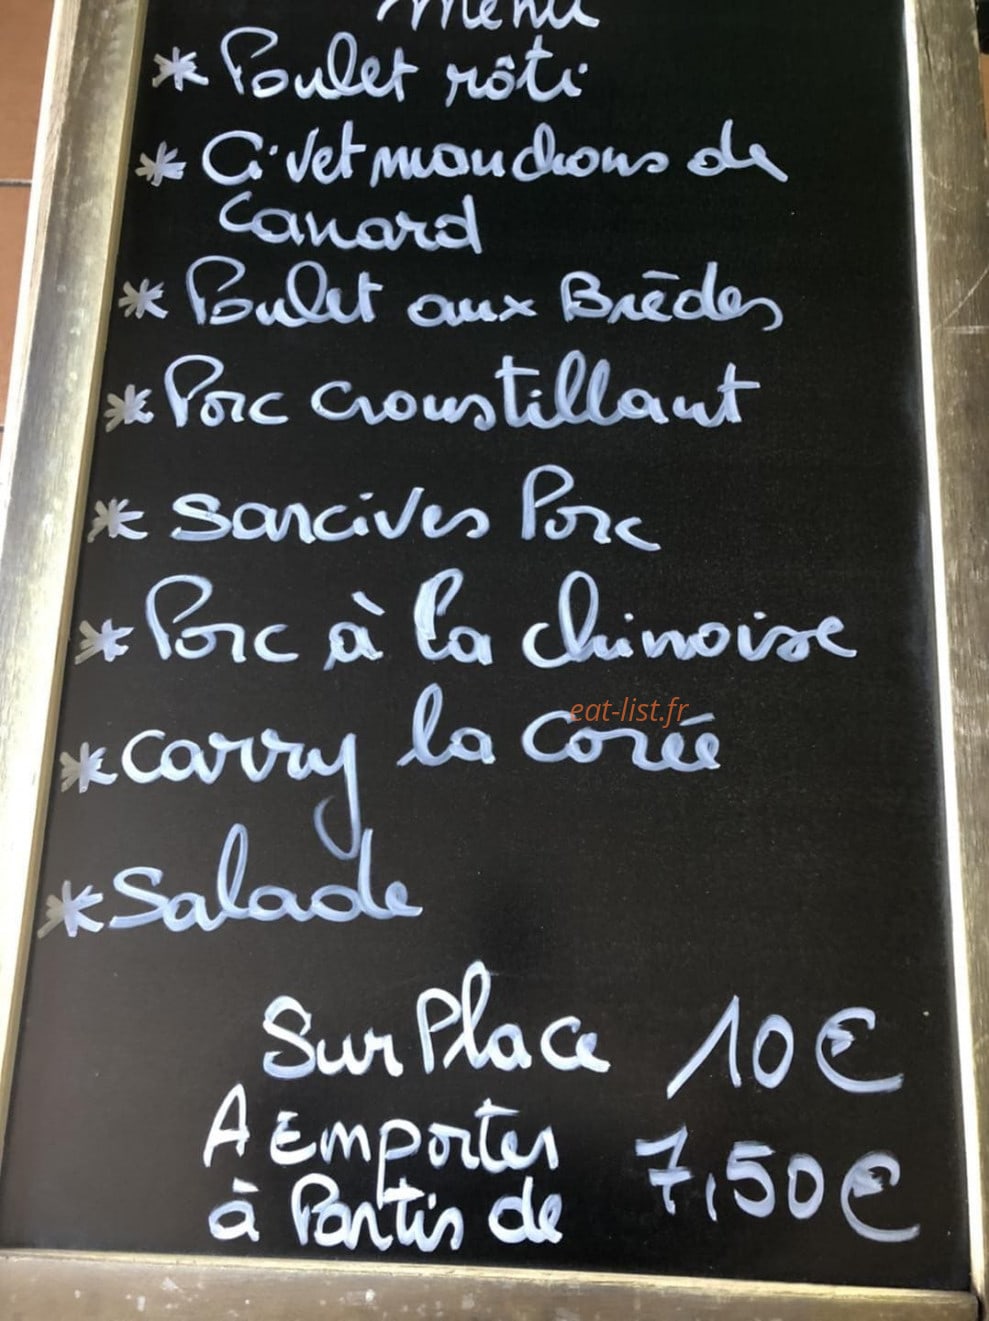 Menu
* Poulet rôti
* Civet manchons de
Canard
* Poulet aux Brèdes
* Porc croustillant
* Sarcives Porc
* Porc à la chinoise
eat-list.fr
* Carry la Corée
* Salade
Sur Place 10€
A Emporter
à Partir de 7,50€